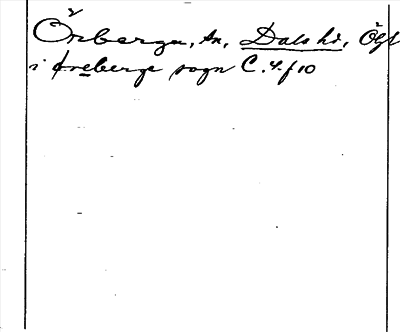 Örberga, sn, Dals hd, Ögl
i Ørebergs sogn C.4.f10